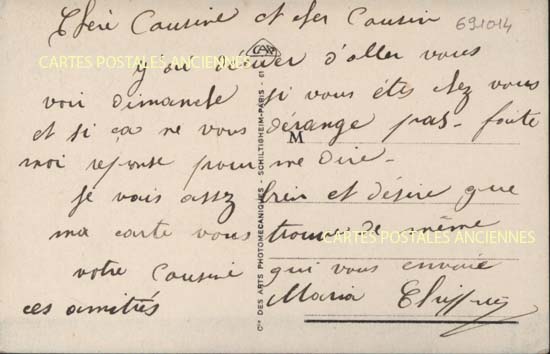 Chère Cousine et cher Cousin
691014
CAP
CARTES POSTALES ANCIENNES
d'aller vous
voir dimanche si vous étes chez vous
et si ça ne vous dérange pas - faite
M
moi reponse pour me dire -
je vais assez bien et désire que
ma carte vous trouve de même
CARTES POSTALES ANCIENNES
votre Cousine qui vous envoie
ces amitiés Maria
Cie DES ARTS PHOTOMECANIQUES - SCHILTIGHEIM-PARIS - 61